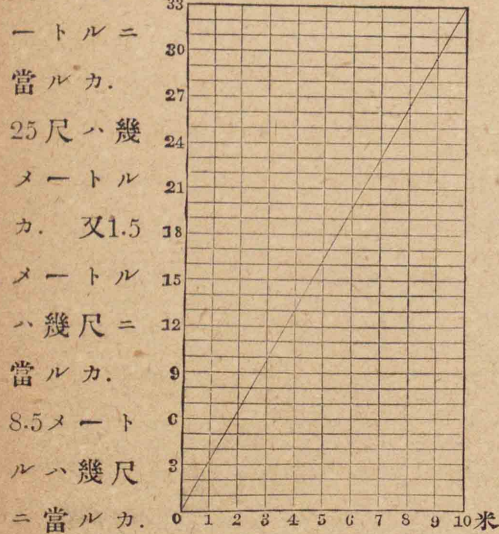 ートルニ
當ルカ.
25尺ハ幾
メートル
カ. 又1.5
メートル
ハ幾尺ニ
當ルカ.
8.5メート
ルハ幾尺
ニ當ルカ.
33
30
27
24
21
18
15
12
9
6
3
0 1 2 3 4 5 6 7 8 9 10米